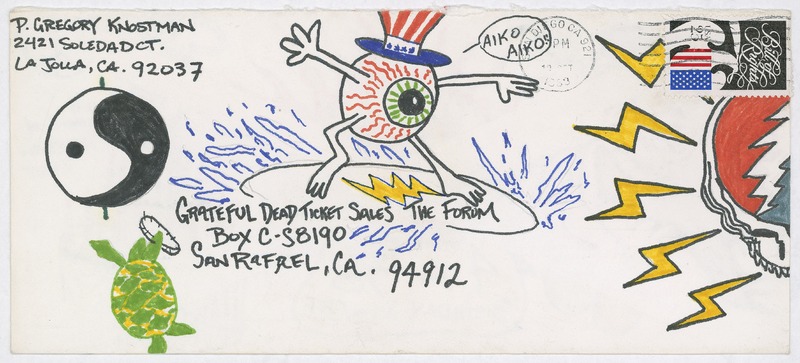 P. GREGORY KNOSTMAN
2421 SOLEDAD CT.
LA JOLLA, CA. 92037
AIKO
AIKO!
DIEGO CA 921
PM
Bill of
Rights
GRATEFUL DEAD TICKET SALES THE FORUM
BOX C-S8190
SAN RAFAEL, CA. 94912